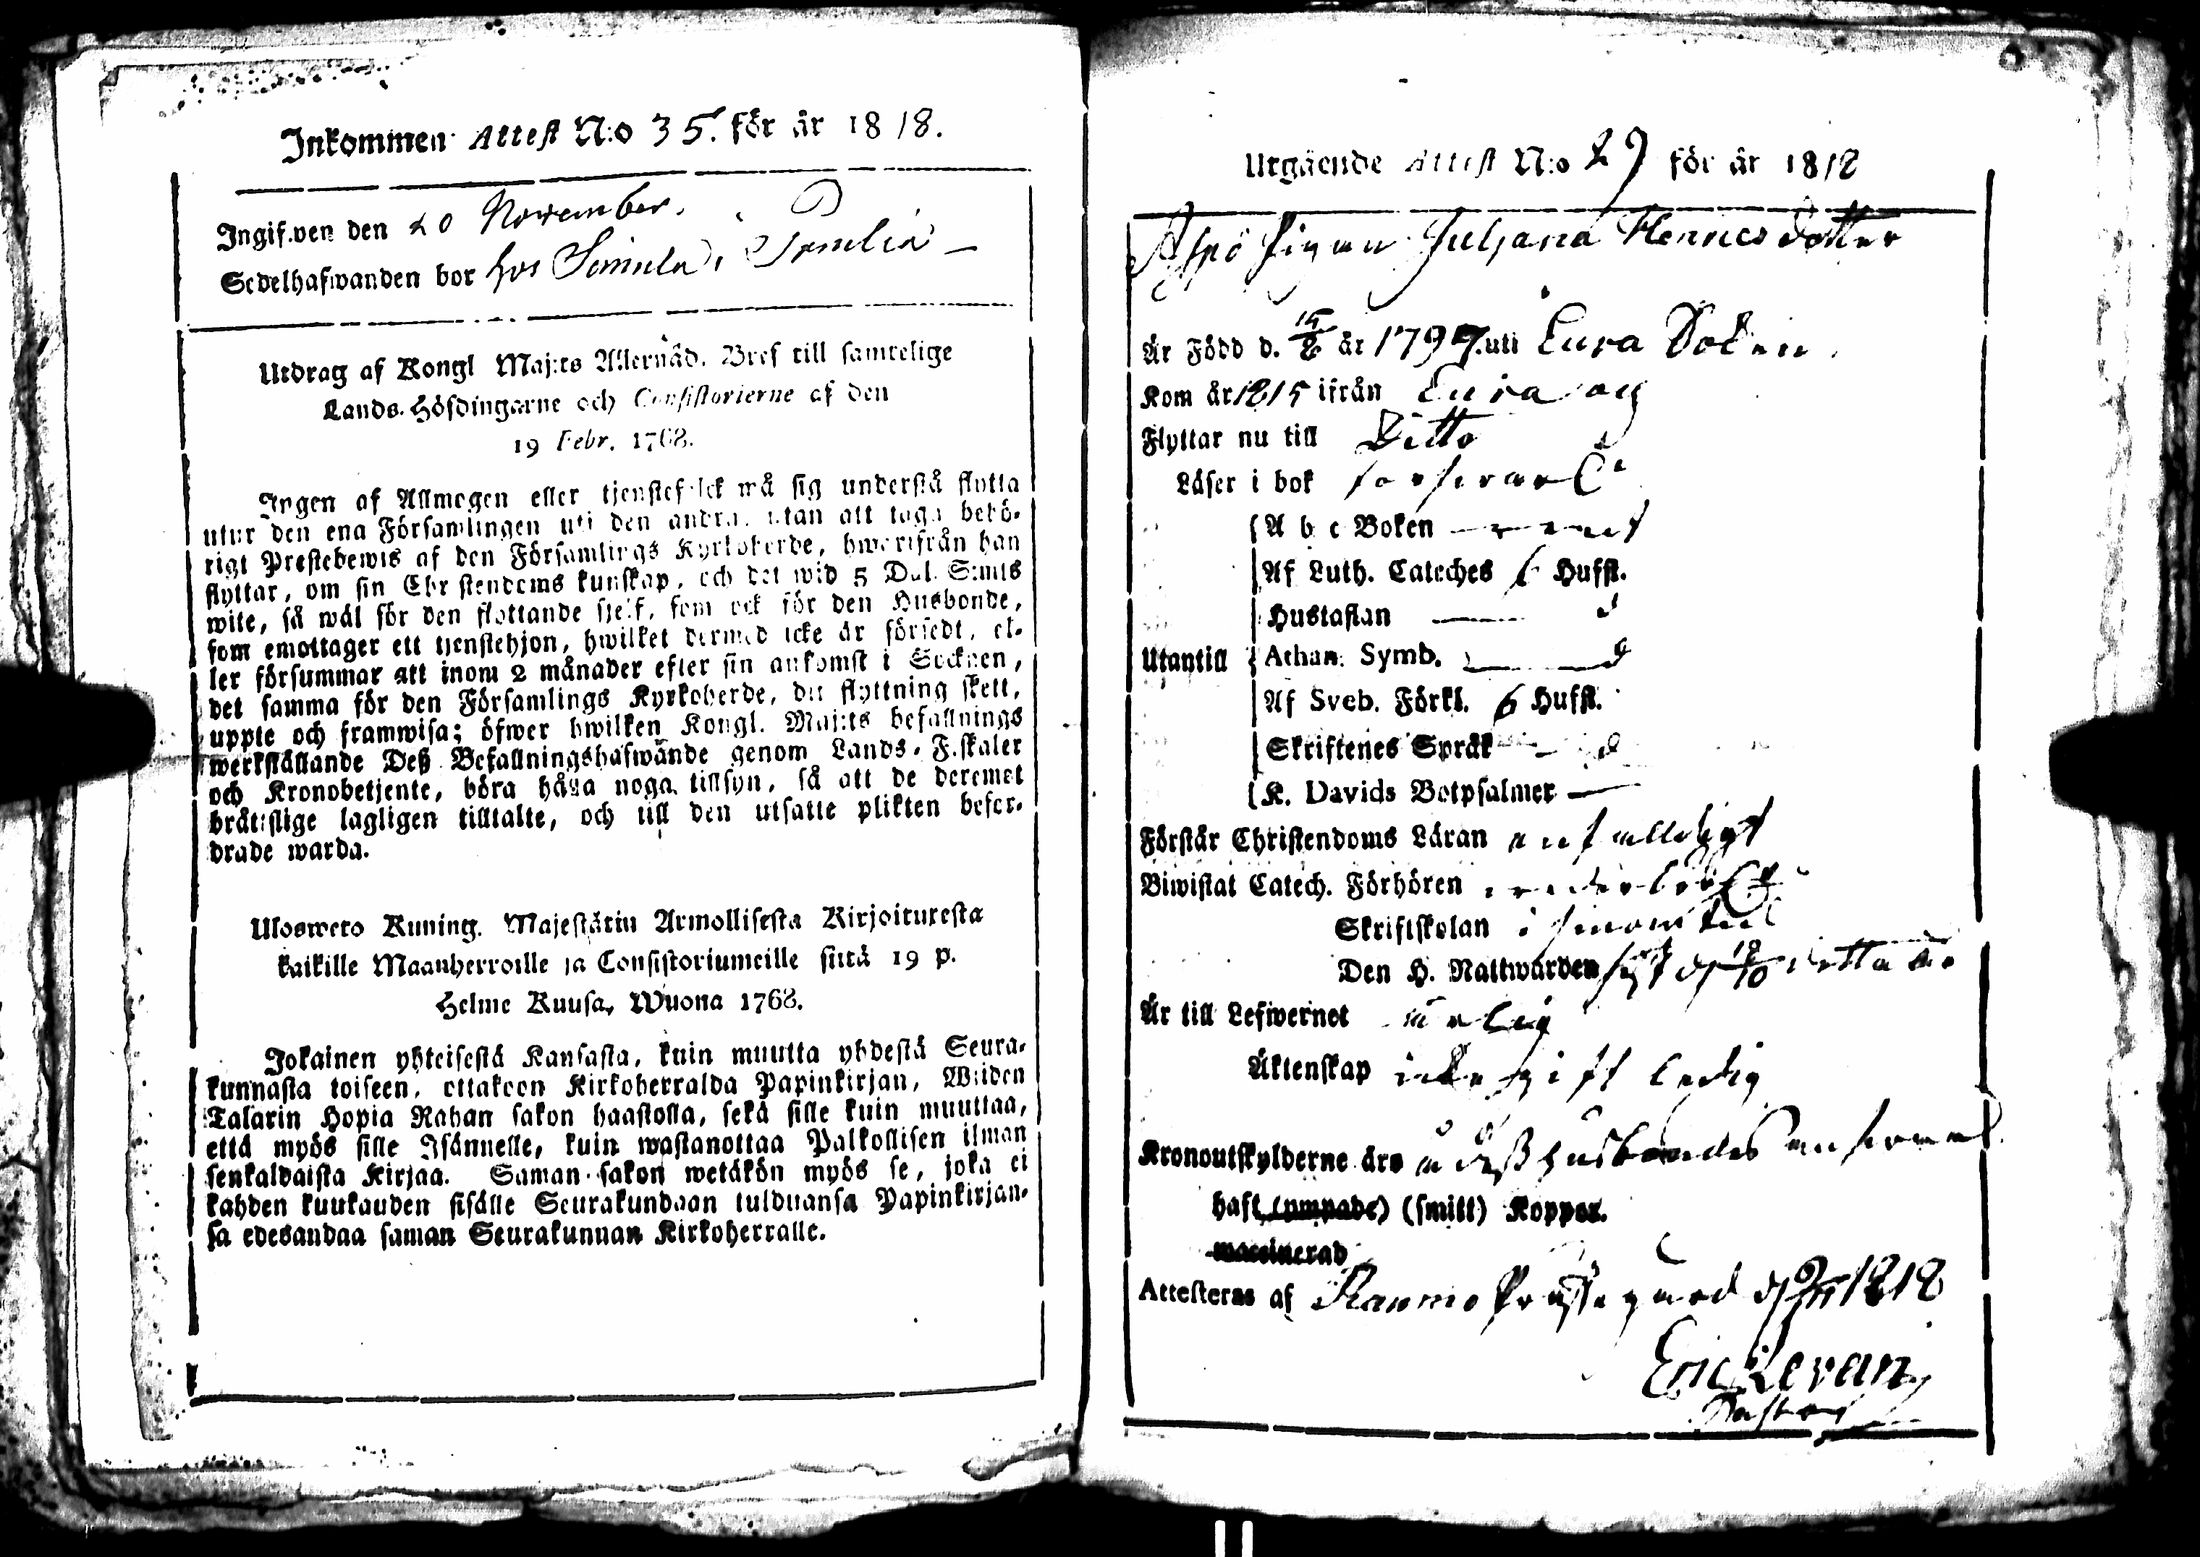 Inkommen Attest N:o 35. för år 1818.
Ingifwen den 20 November.
Sedelhafwanden bor hos Simula i
Utdrag af Kongl Maj:ts Allernåd. Bref till samtelige
Lands-Höfdingarne och Consistorierne af den
19 Febr. 1768.
Ingen af Allmogen eller tjenstefolck må sig understå flytta
utur den ena Församlingen uti den andra, utan att taga behö-
rigt Prestebewis af den Församlings Kyrkoherde, hwarifrån han
flyttar, om sin Christendoms kunskap, och det wid 5 Dal. S:mts
wite, så wäl för den flyttande sjelf, som ock för den Husbonde,
som emottager ett tjenstehjon, hwilket dermed icke är försedt, el-
ler försummar att inom 2 månader efter sin ankomst i Socknen,
det samma för den Församlings Kyrkoherde, dit flyttning skett,
uppte och framwisa; öfwer hwilken Kongl. Maj:ts befallnings
werkställande Deß Befallningshafwande genom Lands-Fiskaler
och Kronobetjente, böra hålla noga tillsyn, så att de deremot
bråttslige lagligen tilltalte, och till den utsatte plikten befor-
drade warda.
Ulosweto Kuning. Majestätin Armollisesta Kirjoituresta
kaikille Maanherroille ja Consistoriumeille siitä 19 p.
Helme Kuusa, Wuona 1768.
Jokainen yhteisestä Kansasta, kuin muutta yhdestä Seura-
kunnasta toiseen, ottakoon Kirkoherralda Papinkirjan, Wiiden
Talarin Hopia Rahan sakon haastolla, sekä sille kuin muuttaa,
että myös sille Isännelle, kuin wastanottaa Palkollisen ilman
senkaldaista Kirjaa. Saman sakon wetäkön myös se, joka ei
kahden kuukauden sisälle Seurakundaan tulduansa Papinkirjan-
sa edesandaa saman Seurakunnan Kirkoherralle.
Utgående Attest N:o 29 för år 1818
Pigan Juljana Henricsdotter
Är Född d. 15/8 år 1797. uti Eura Sokn.
Kom år 1815 ifrån Eura och
Flyttar nu till Ditto
Läser i bok försvarl.
A b c Boken rent
Af Luth. Cateches 6 Hufst.
Hustaflan d
Utantill Athan. Symb. d
Af Sveb. Förkl. 6 Hufst.
Skriftenes Språk d
K. Davids Botpsalmer —
Förstår Christendoms Läran enfalleligt
Biwistat Catech. Förhören
Skriftskolan
Den H. Nattwarden sist d 18/10 detta år
Är till Lefwernet ärlig
Äktenskap icke gift ledig
Kronoutskylderne äro å deß husbondes ansvar
haft (ympade) (smitt) Koppor.
waccinerad
Attesteras af Raumo Prästegård d 9/11 1818
Eric Levan
Pastor